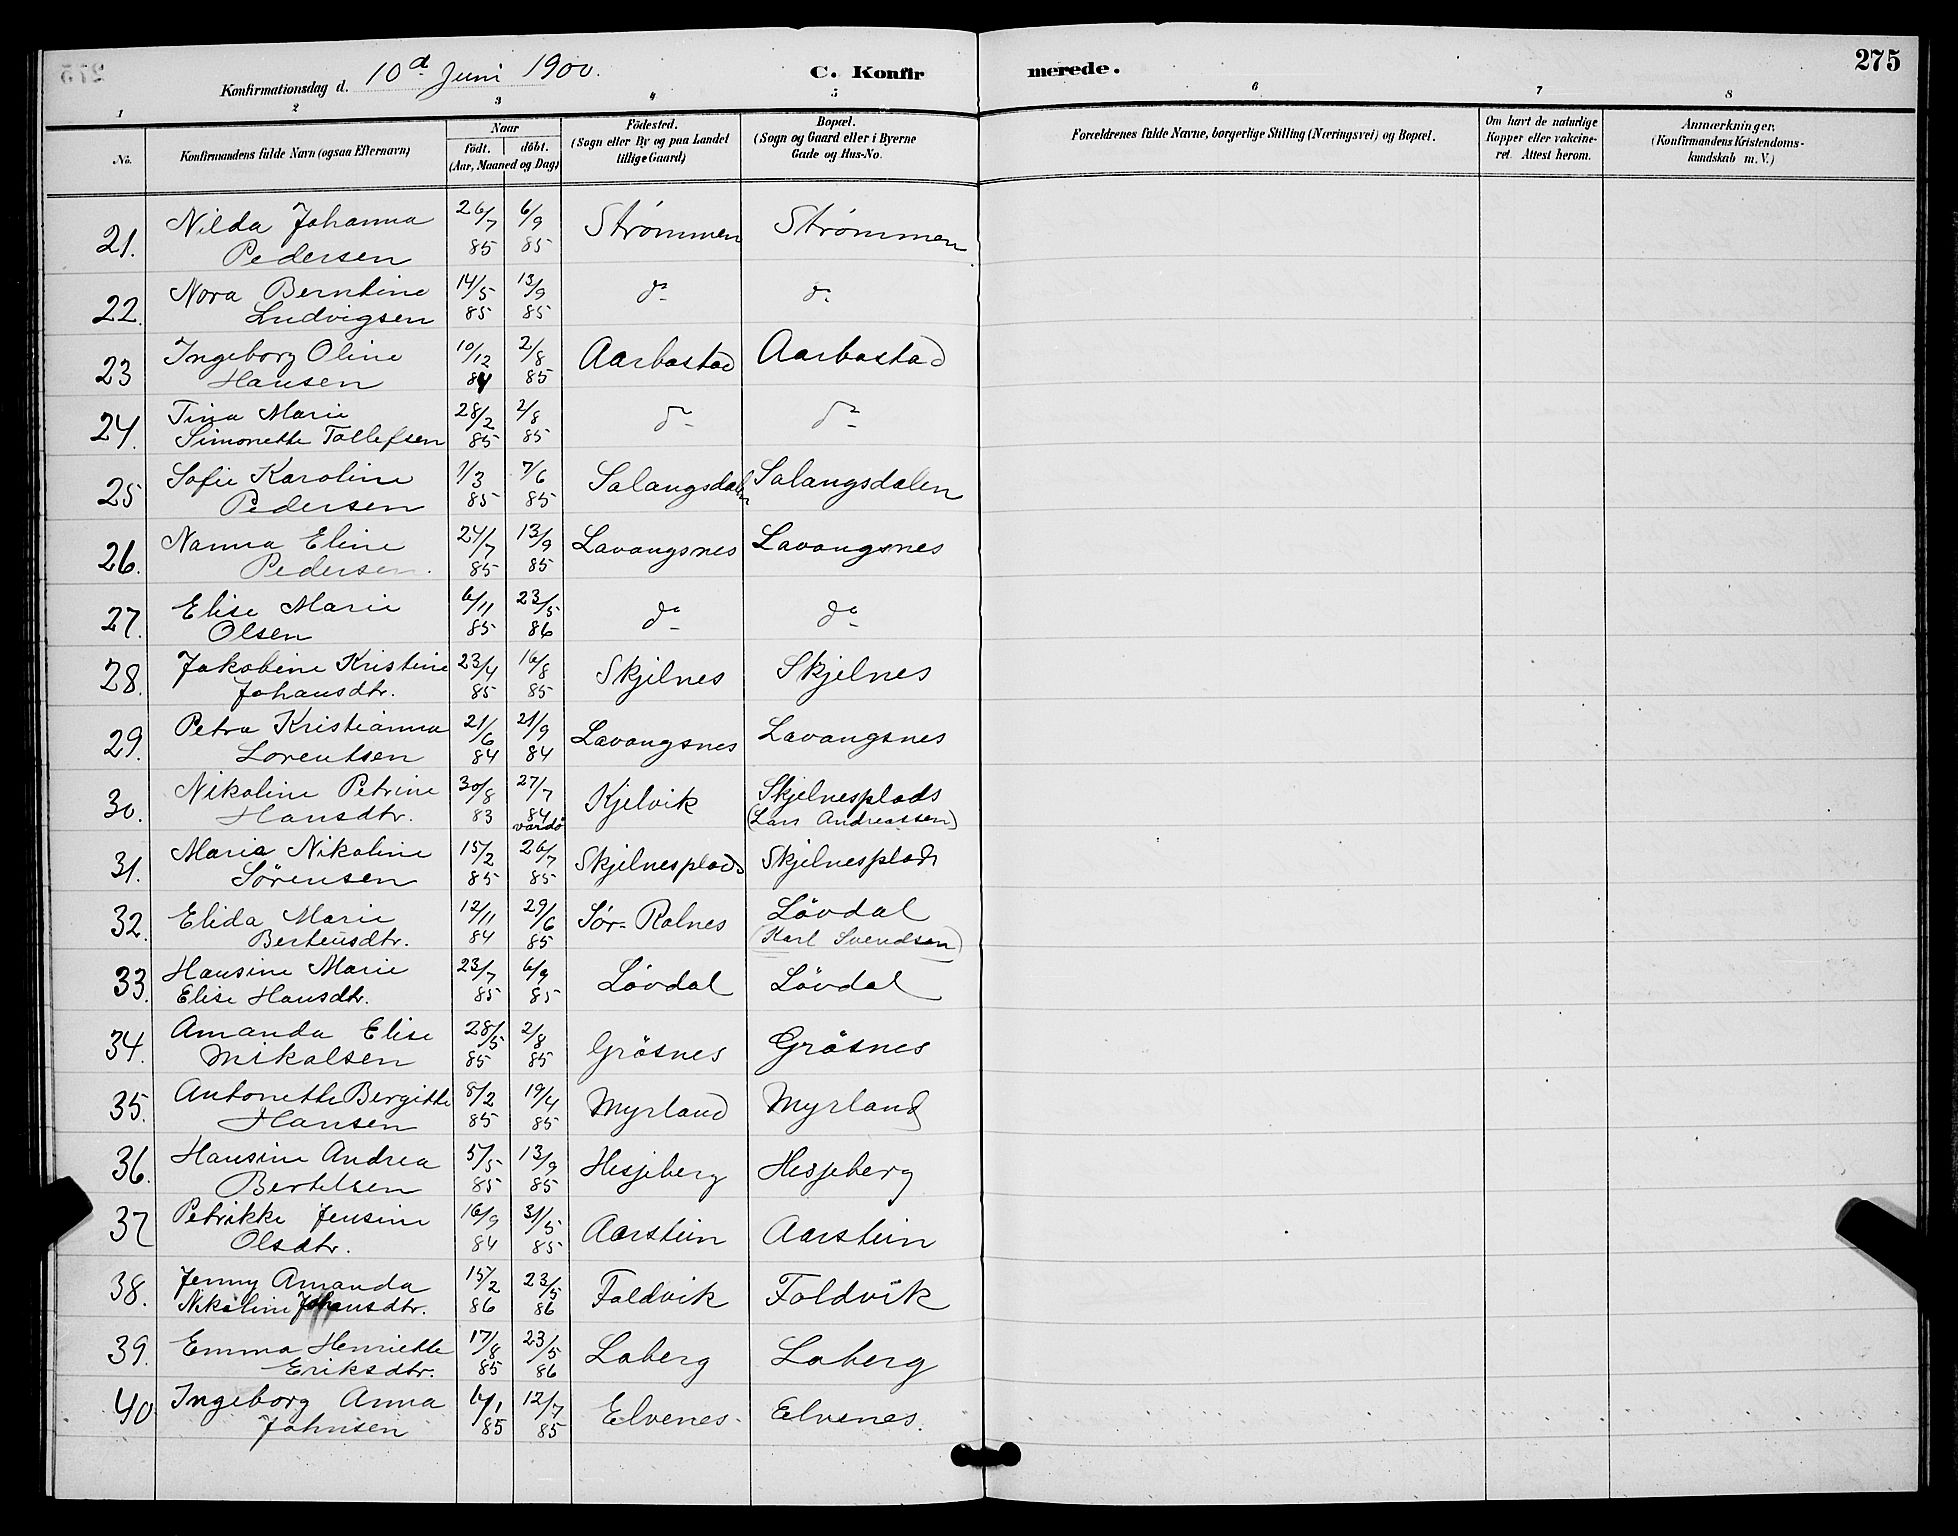 275
Konfirmationsdag d. 10d Juni 1900.
C. Konfirmerede.
1 2 3 4 5 6 7 8
No. Konfirmandens fulde Navn (ogsaa Efternavn) Naar födt. döbt. (Aar, Maaned og Dag) Födested. (Sogn eller By og paa Landet tillige Gaard) Bopæl. (Sogn og Gaard eller i Byerne Gade og Hus-No. Forældrenes fulde Navne, borgerlige Stilling (Næringsvei) og Bopæl. Om havt de naturlige Kopper eller vakcineret. Attest herom. Anmærkninger. (Konfirmandens Kristendomskundskab m. V.)
21. Nilda Johanna Pedersen 26/7 85 6/9 85 Strømmen Strømmen
22. Nora Berntine Ludvigsen 14/5 85 13/9 85 do do
23 Ingeborg Oline Hansen 10/12 84 2/8 85 Aarbostad Aarbostad
24. Tina Marie Simonette Tollefsen 28/2 85 2/8 85 do do
25 Sofie Karoline Pedersen 1/3 85 7/6 85 Salangsdalen Salangsdalen
26. Nanna Eline Pedersen. 24/7 85 13/9 85 Lavangsnes Lavangsnes
27. Elise Marie Olsen 6/11 85 23/5 86 do do
28. Jakobine Kristine Johansdtr. 23/4 85 16/8 85 Skjelnes Skjelnes
29. Petra Kristianna Lorentsen 21/6 84 21/9 84 Lavangsnes Lavangsnes
30. Nikoline Petrine Hansdtr. 30/8 83 27/7 84 Vardö Kjelvik Skjelnesplads (Lars Andreassen)
31. Maria Nikoline Sörensen 15/2 85 26/7 85 Skjelnesplads Skjelnesplads
32. Elida Marie Berteusdtr. 12/11 84 29/6 85 Sör-Rolnes Lövdal (Karl Svendsen)
33. Hansine Marie Elise Hansdtr. 23/7 85 6/9 85 Lövdal Lövdal
34. Amanda Elise Mikalsen 28/5 85 2/8 85 Gråsnes Gråsnes
35. Antonette Bergitte Hansen 8/2 85 19/4 85 Myrland Myrland
36. Hansine Andrea Bertelsen 5/5 85 13/9 85 Hesjeberg Hesjeberg
37 Petrikke Jensine Olsdtr. 16/9 84 31/5 85 Aarstein Aarstein
38. Jenny Amanda Nikoline Johansdtr. 15/2 86 23/5 86 Foldvik Foldvik
39. Emma Henriette Eriksdtr. 17/8 85 23/5 86 Loberg Loberg
40 Ingeborg Anna Johnsen 6/1 85 12/7 85 Elvenes Elvenes.